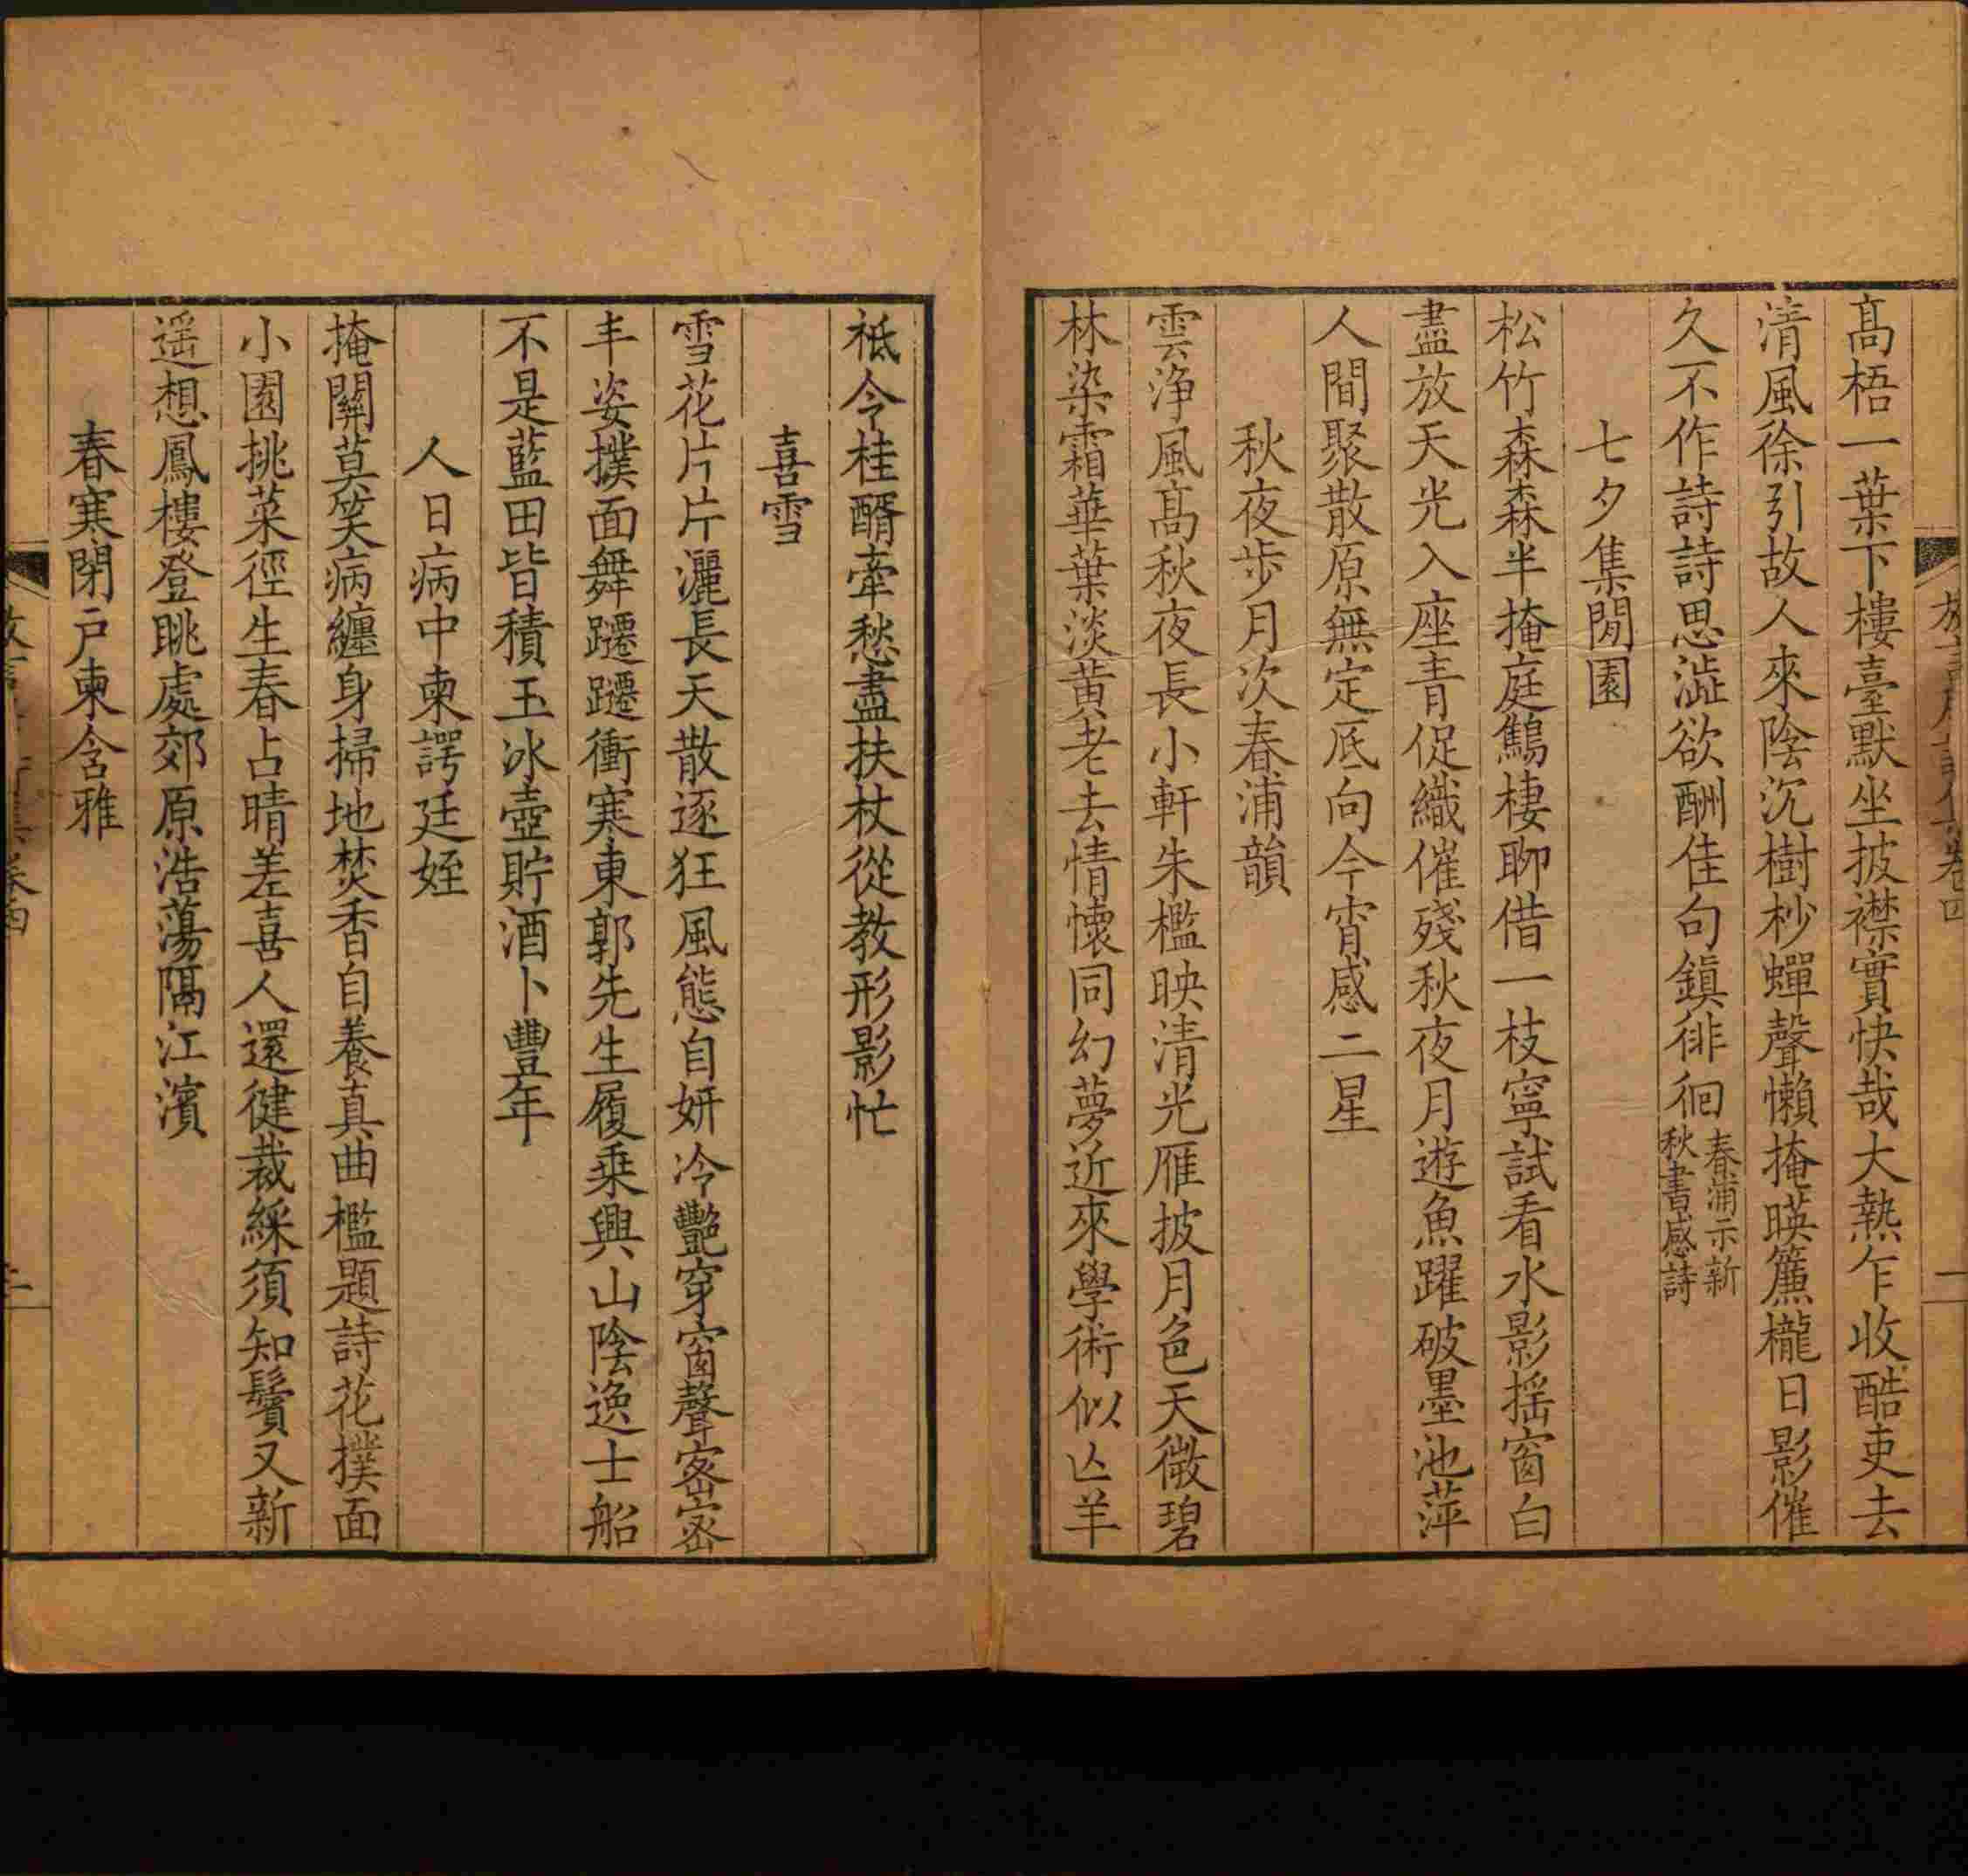 高梧一葉下樓臺默坐披襟實快哉大熱乍收酷吏去
清風徐引故人來陰沉樹杪蟬聲懶掩暎簾櫳日影催
久不作詩詩思澁欲酬佳句鎮徘徊春浦示新秋書感詩
七夕集閒園
松竹森森半掩庭鷦棲聊借一枝寧試看水影揺窗白
盡放天光入座青促織催殘秋夜月遊魚躍破墨池萍
人間聚散原無定底向今宵感二星
秋夜步月次春浦韻
雲淨風高秋夜長小軒朱檻映清光雁披月色天微碧
林染霜華葉淡黃老去情懷同幻夢近來學術似亾羊
祗令桂醑牽愁盡扶杖從教形影忙
喜雪
雪花片片灑長天散逐狂風態自妍冷艷穿窗聲密密
丰姿撲面舞躚躚衝寒東郭先生履乗興山陰逸士船
不是藍田皆積玉冰壺貯酒卜豐年
人日病中柬諤廷姪
掩關莫笑病纏身掃地焚香自養真曲檻題詩花撲面
小園挑菜徑生春占晴差喜人還健裁綵須知鬢又新
遥想鳳樓登眺處郊原浩蕩隔江濱
春寒閉戸柬含雅
卷四